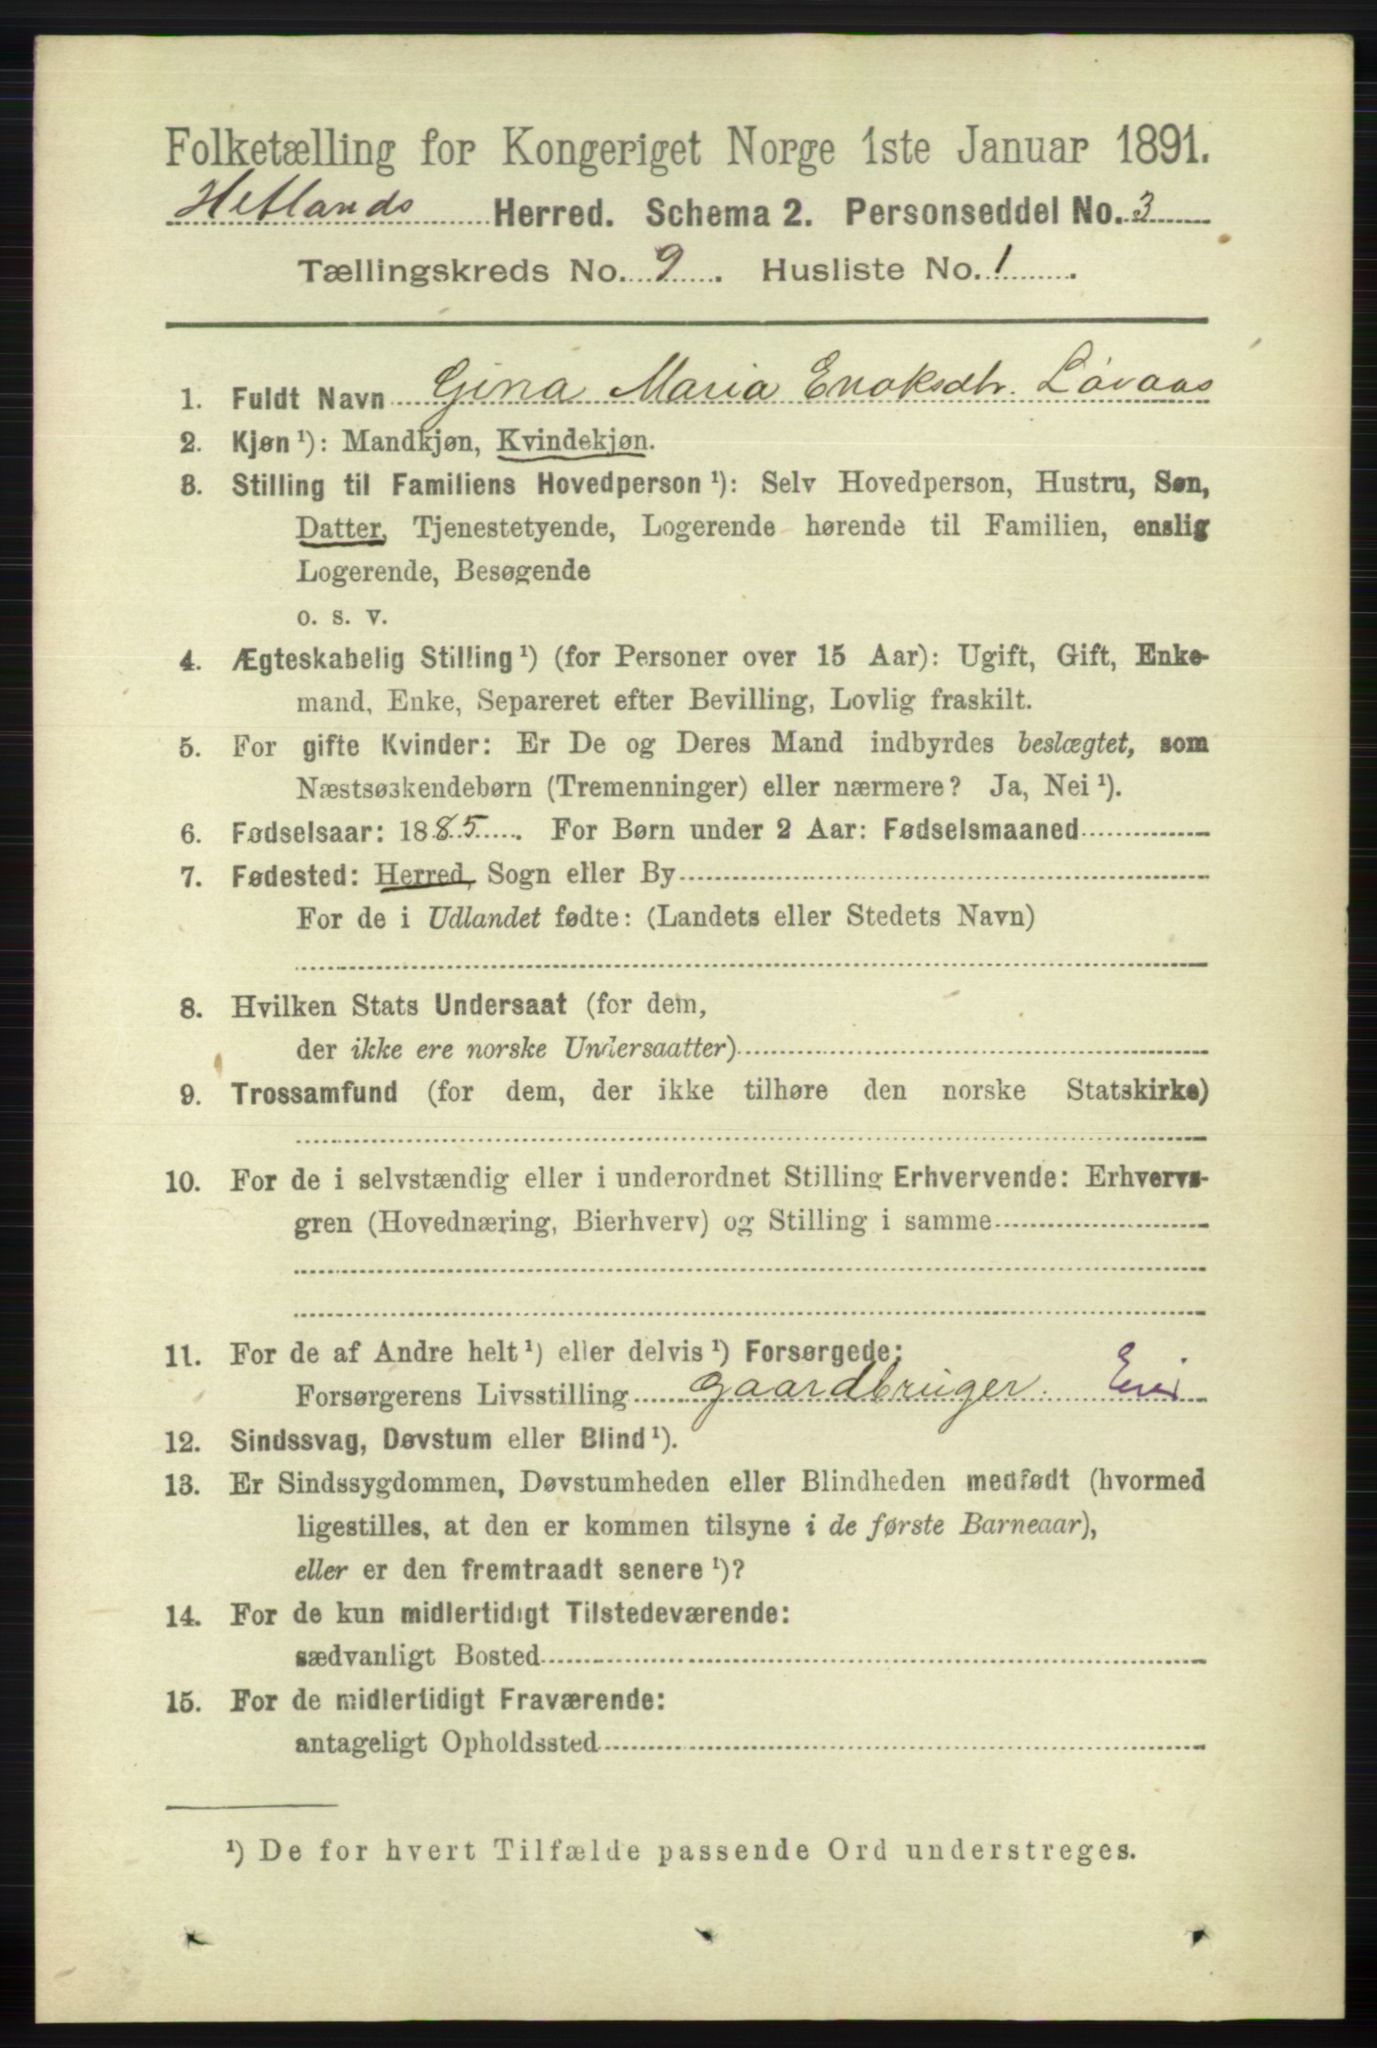 Folketælling for Kongeriget Norge 1ste Januar 1891.
Hetlands Herred. Schema 2. Personseddel No. 3
Tællingskreds No. 9. Husliste No. 1.
1. Fuldt Navn Gina Maria Enoksdtr. Løvaas
2. Kjøn ¹): Mandkjøn, Kvindekjøn.
3. Stilling til Familiens Hovedperson ¹): Selv Hovedperson, Hustru, Søn,
Datter, Tjenestetyende, Logerende hørende til Familien, enslig
Logerende, Besøgende
o. s. v.
4. Ægteskabelig Stilling ¹) (for Personer over 15 Aar): Ugift, Gift, Enke-
mand, Enke, Separeret efter Bevilling, Lovlig fraskilt.
5. For gifte Kvinder: Er De og Deres Mand indbyrdes beslægtet, som
Næstsøskendebørn (Tremenninger) eller nærmere? Ja, Nei ¹).
6. Fødselsaar: 1885. For Børn under 2 Aar: Fødselsmaaned
7. Fødested: Herred, Sogn eller By
For de i Udlandet fødte: (Landets eller Stedets Navn)
8. Hvilken Stats Undersaat (for dem,
der ikke ere norske Undersaatter)
9. Trossamfund (for dem, der ikke tilhøre den norske Statskirke)
10. For de i selvstændig eller i underordnet Stilling Erhvervende: Erhvervs-
gren (Hovednæring, Bierhverv) og Stilling i samme
11. For de af Andre helt ¹) eller delvis ¹) Forsørgede:
Forsørgerens Livsstilling gaardbruger.
12. Sindssvag, Døvstum eller Blind ¹).
13. Er Sindssygdommen, Døvstumheden eller Blindheden medfødt (hvormed
ligestilles, at den er kommen tilsyne i de første Barneaar),
eller er den fremtraadt senere ¹)?
14. For de kun midlertidigt Tilstedeværende:
sædvanligt Bosted
15. For de midlertidigt Fraværende:
antageligt Opholdssted
¹) De for hvert Tilfælde passende Ord understreges.